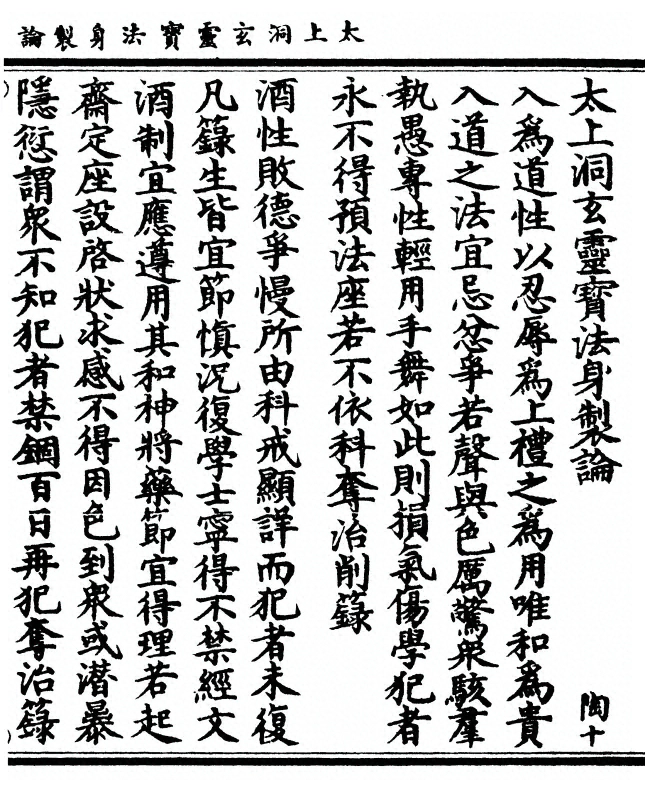 太上洞玄靈寶法身製論
太上洞玄靈寶法身製論
陶十
入爲道性以忍辱爲上禮之爲用唯和爲貴
入道之法宜忌忿爭若聲與色厲驚衆駭羣
執愚專性輕用手舞如此則損氣傷學犯者
永不得預法座若不依科奪治削籙
酒性敗德爭慢所由科戒顯詳而犯者未復
凡籙生皆宜節慎況復學士寧得不禁經文
酒制宜應遵用其和神將藥節宜得理若起
齋定座設啓狀求感不得因色到衆或潛暴
隱愆謂衆不知犯者禁錮百日再犯奪治籙